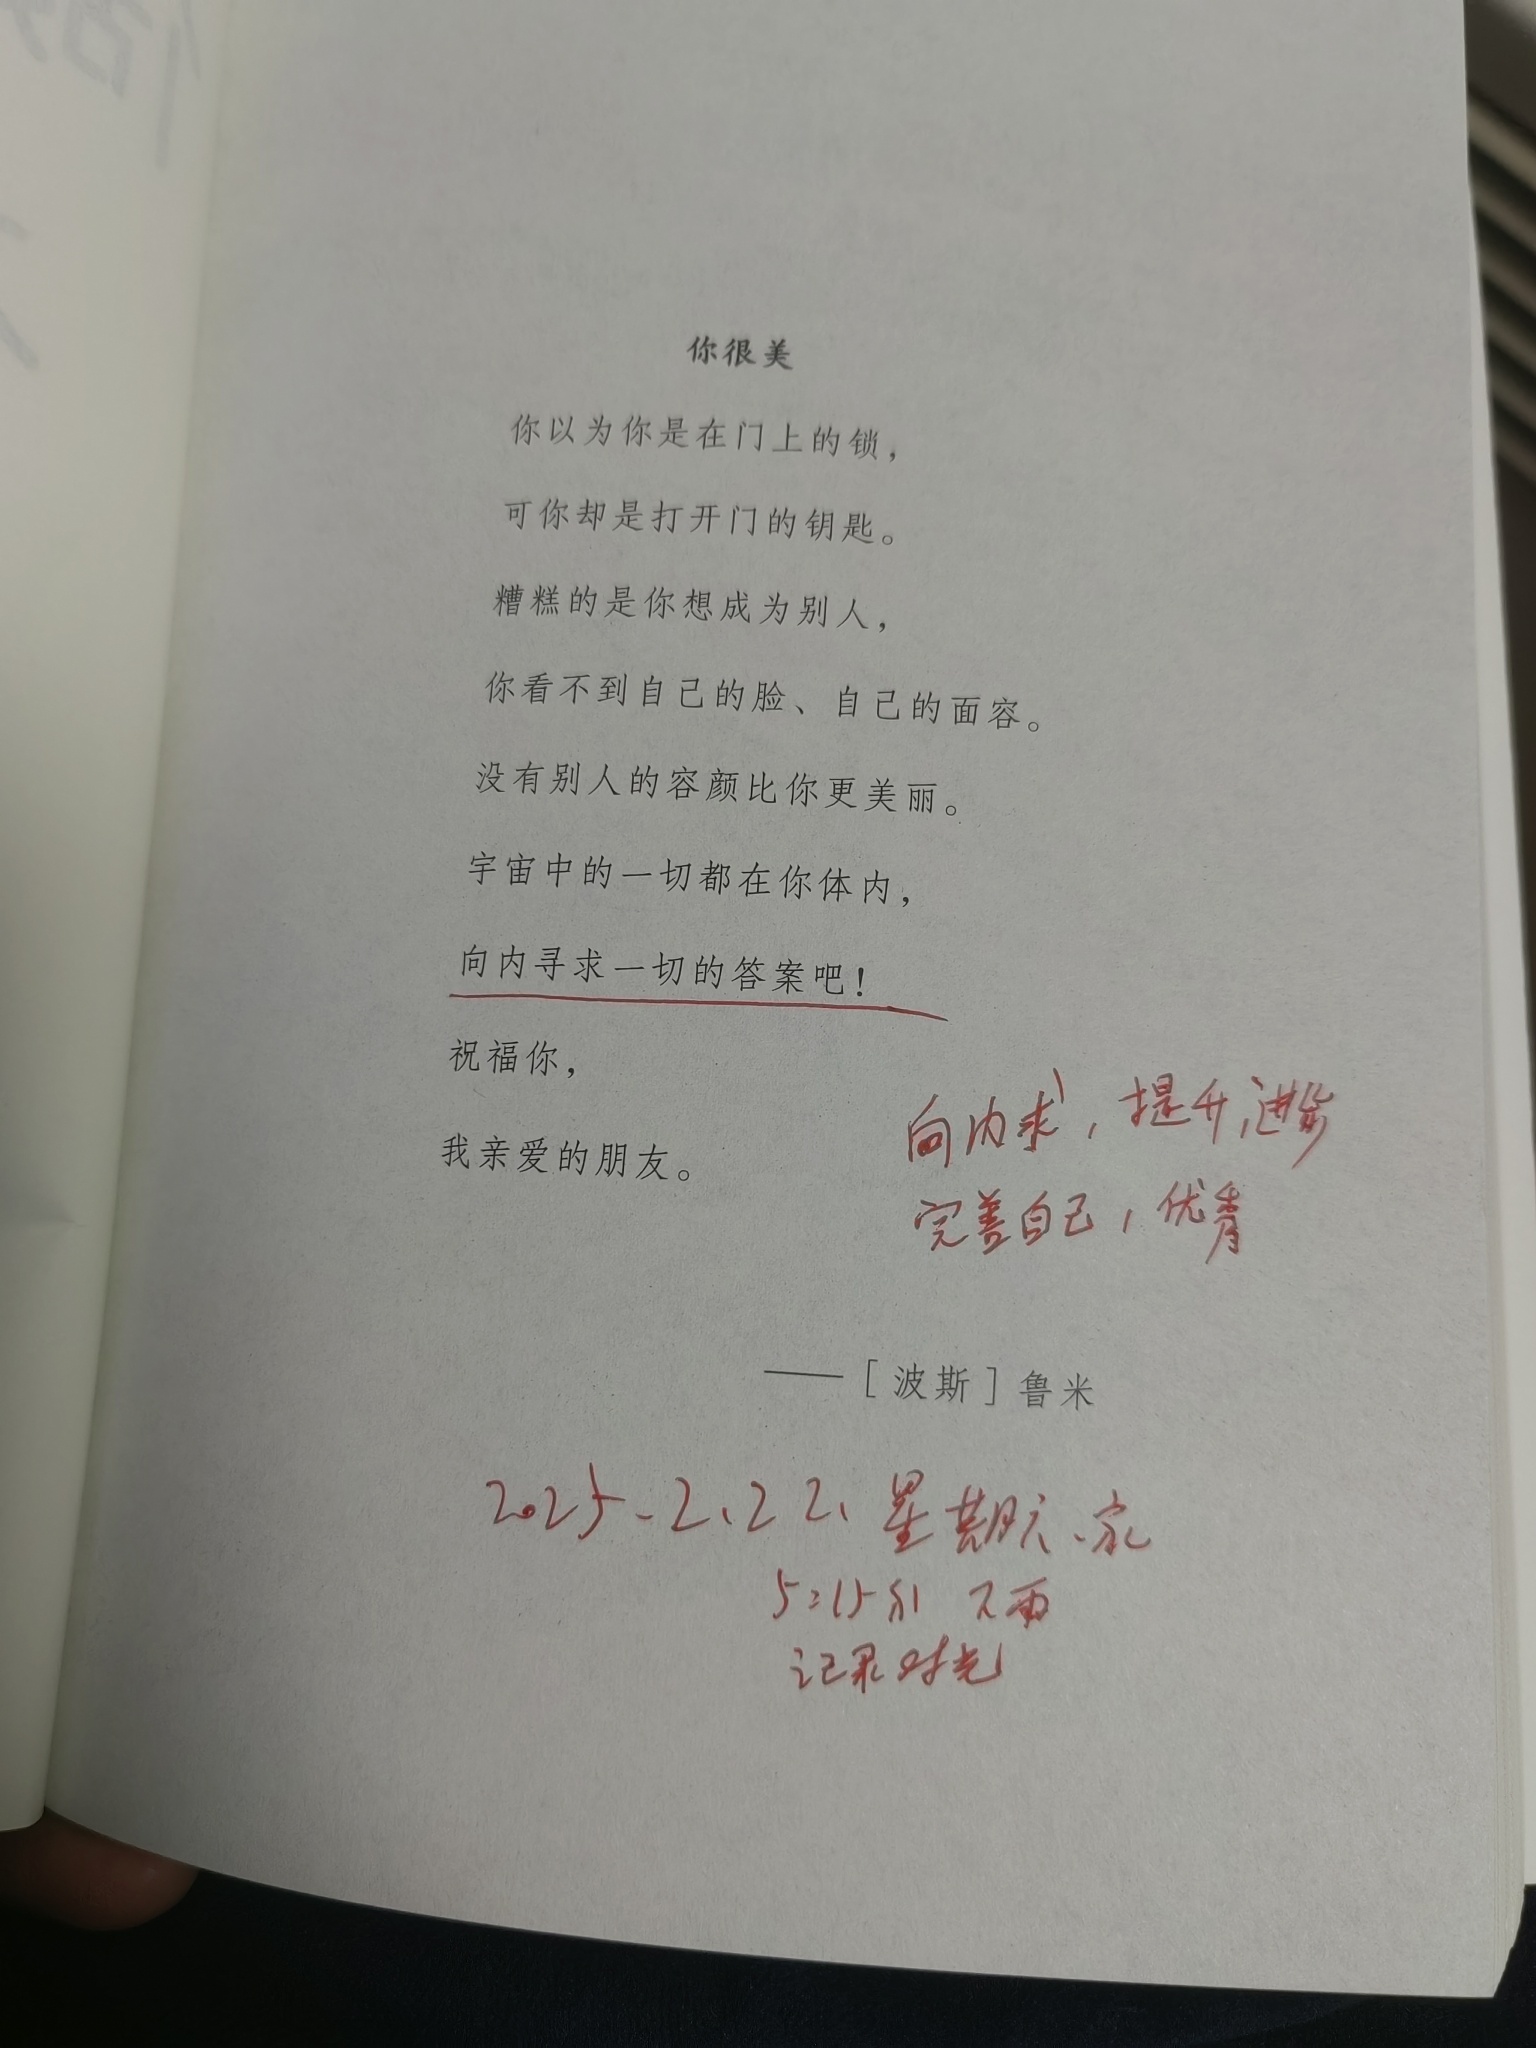 你很美
你以为你是在门上的锁，
可你却是打开门的钥匙。
糟糕的是你想成为别人，
你看不到自己的脸、自己的面容。
没有别人的容颜比你更美丽。
宇宙中的一切都在你体内，
向内寻求一切的答案吧！
祝福你，
我亲爱的朋友。
向内求，提升，进步
完善自己，优秀
——［波斯］鲁米
2025.2.22.星期六.家
5:15分 雨
记录时光